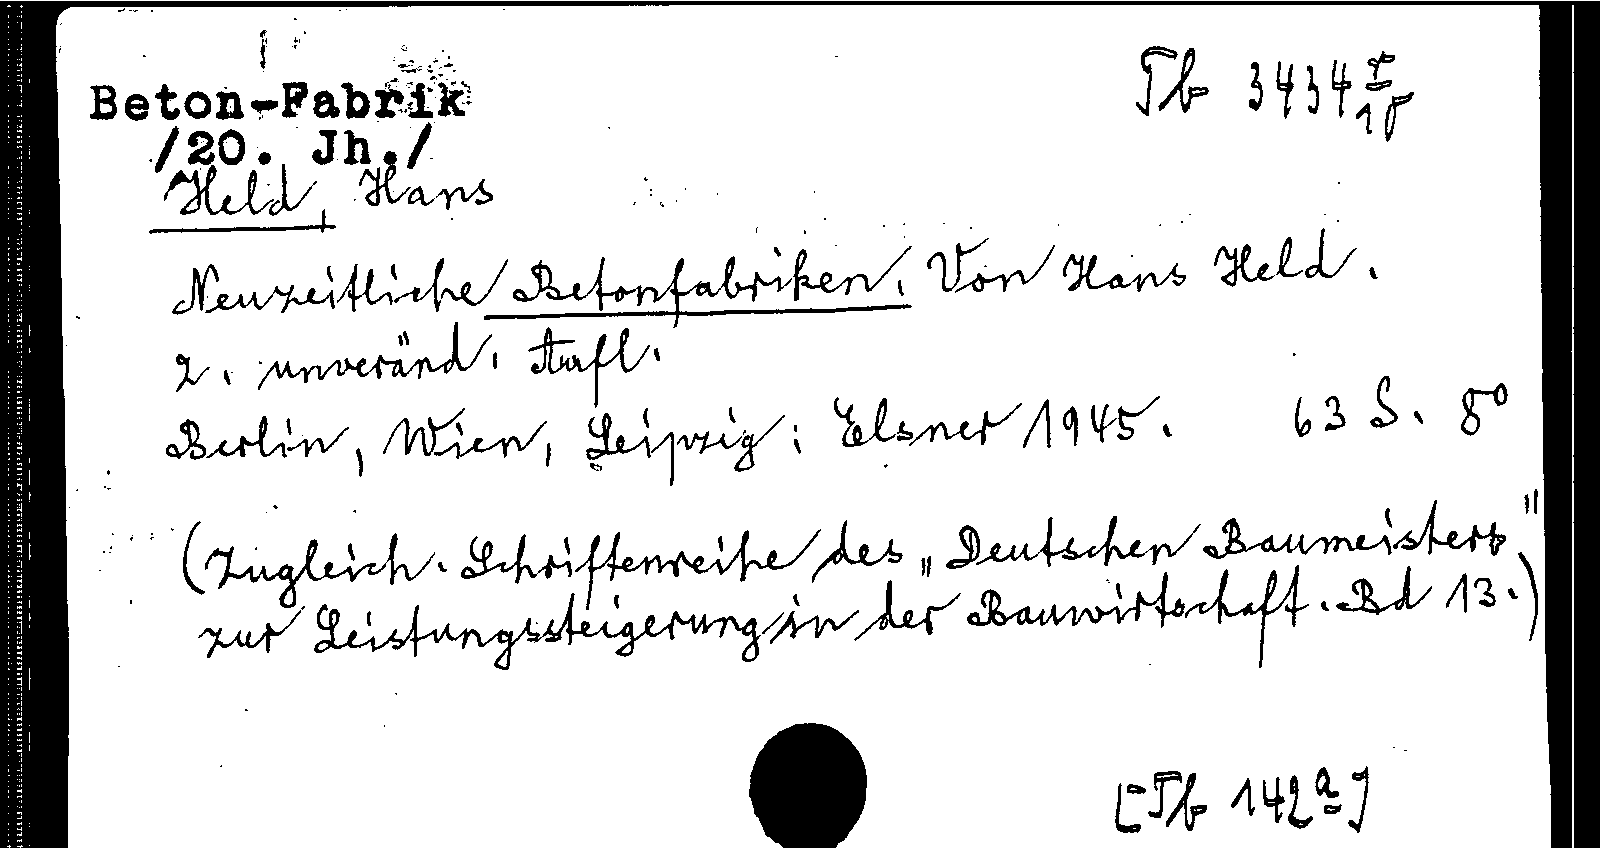 Beton-Fabrik
/20. Jh./
Tb 3434 r/18
Held, Hans
Neuzeitliche Betonfabriken. Von Hans Held.
2. unveränd. Aufl.
Berlin, Wien, Leipzig: Elsner 1945. 63 S. 8°
(Zugleich. Schriftenreihe des „Deutschen Baumeisters"
zur Leistungssteigerung in der Bauwirtschaft. Bd 13.)
[Tb 142a]